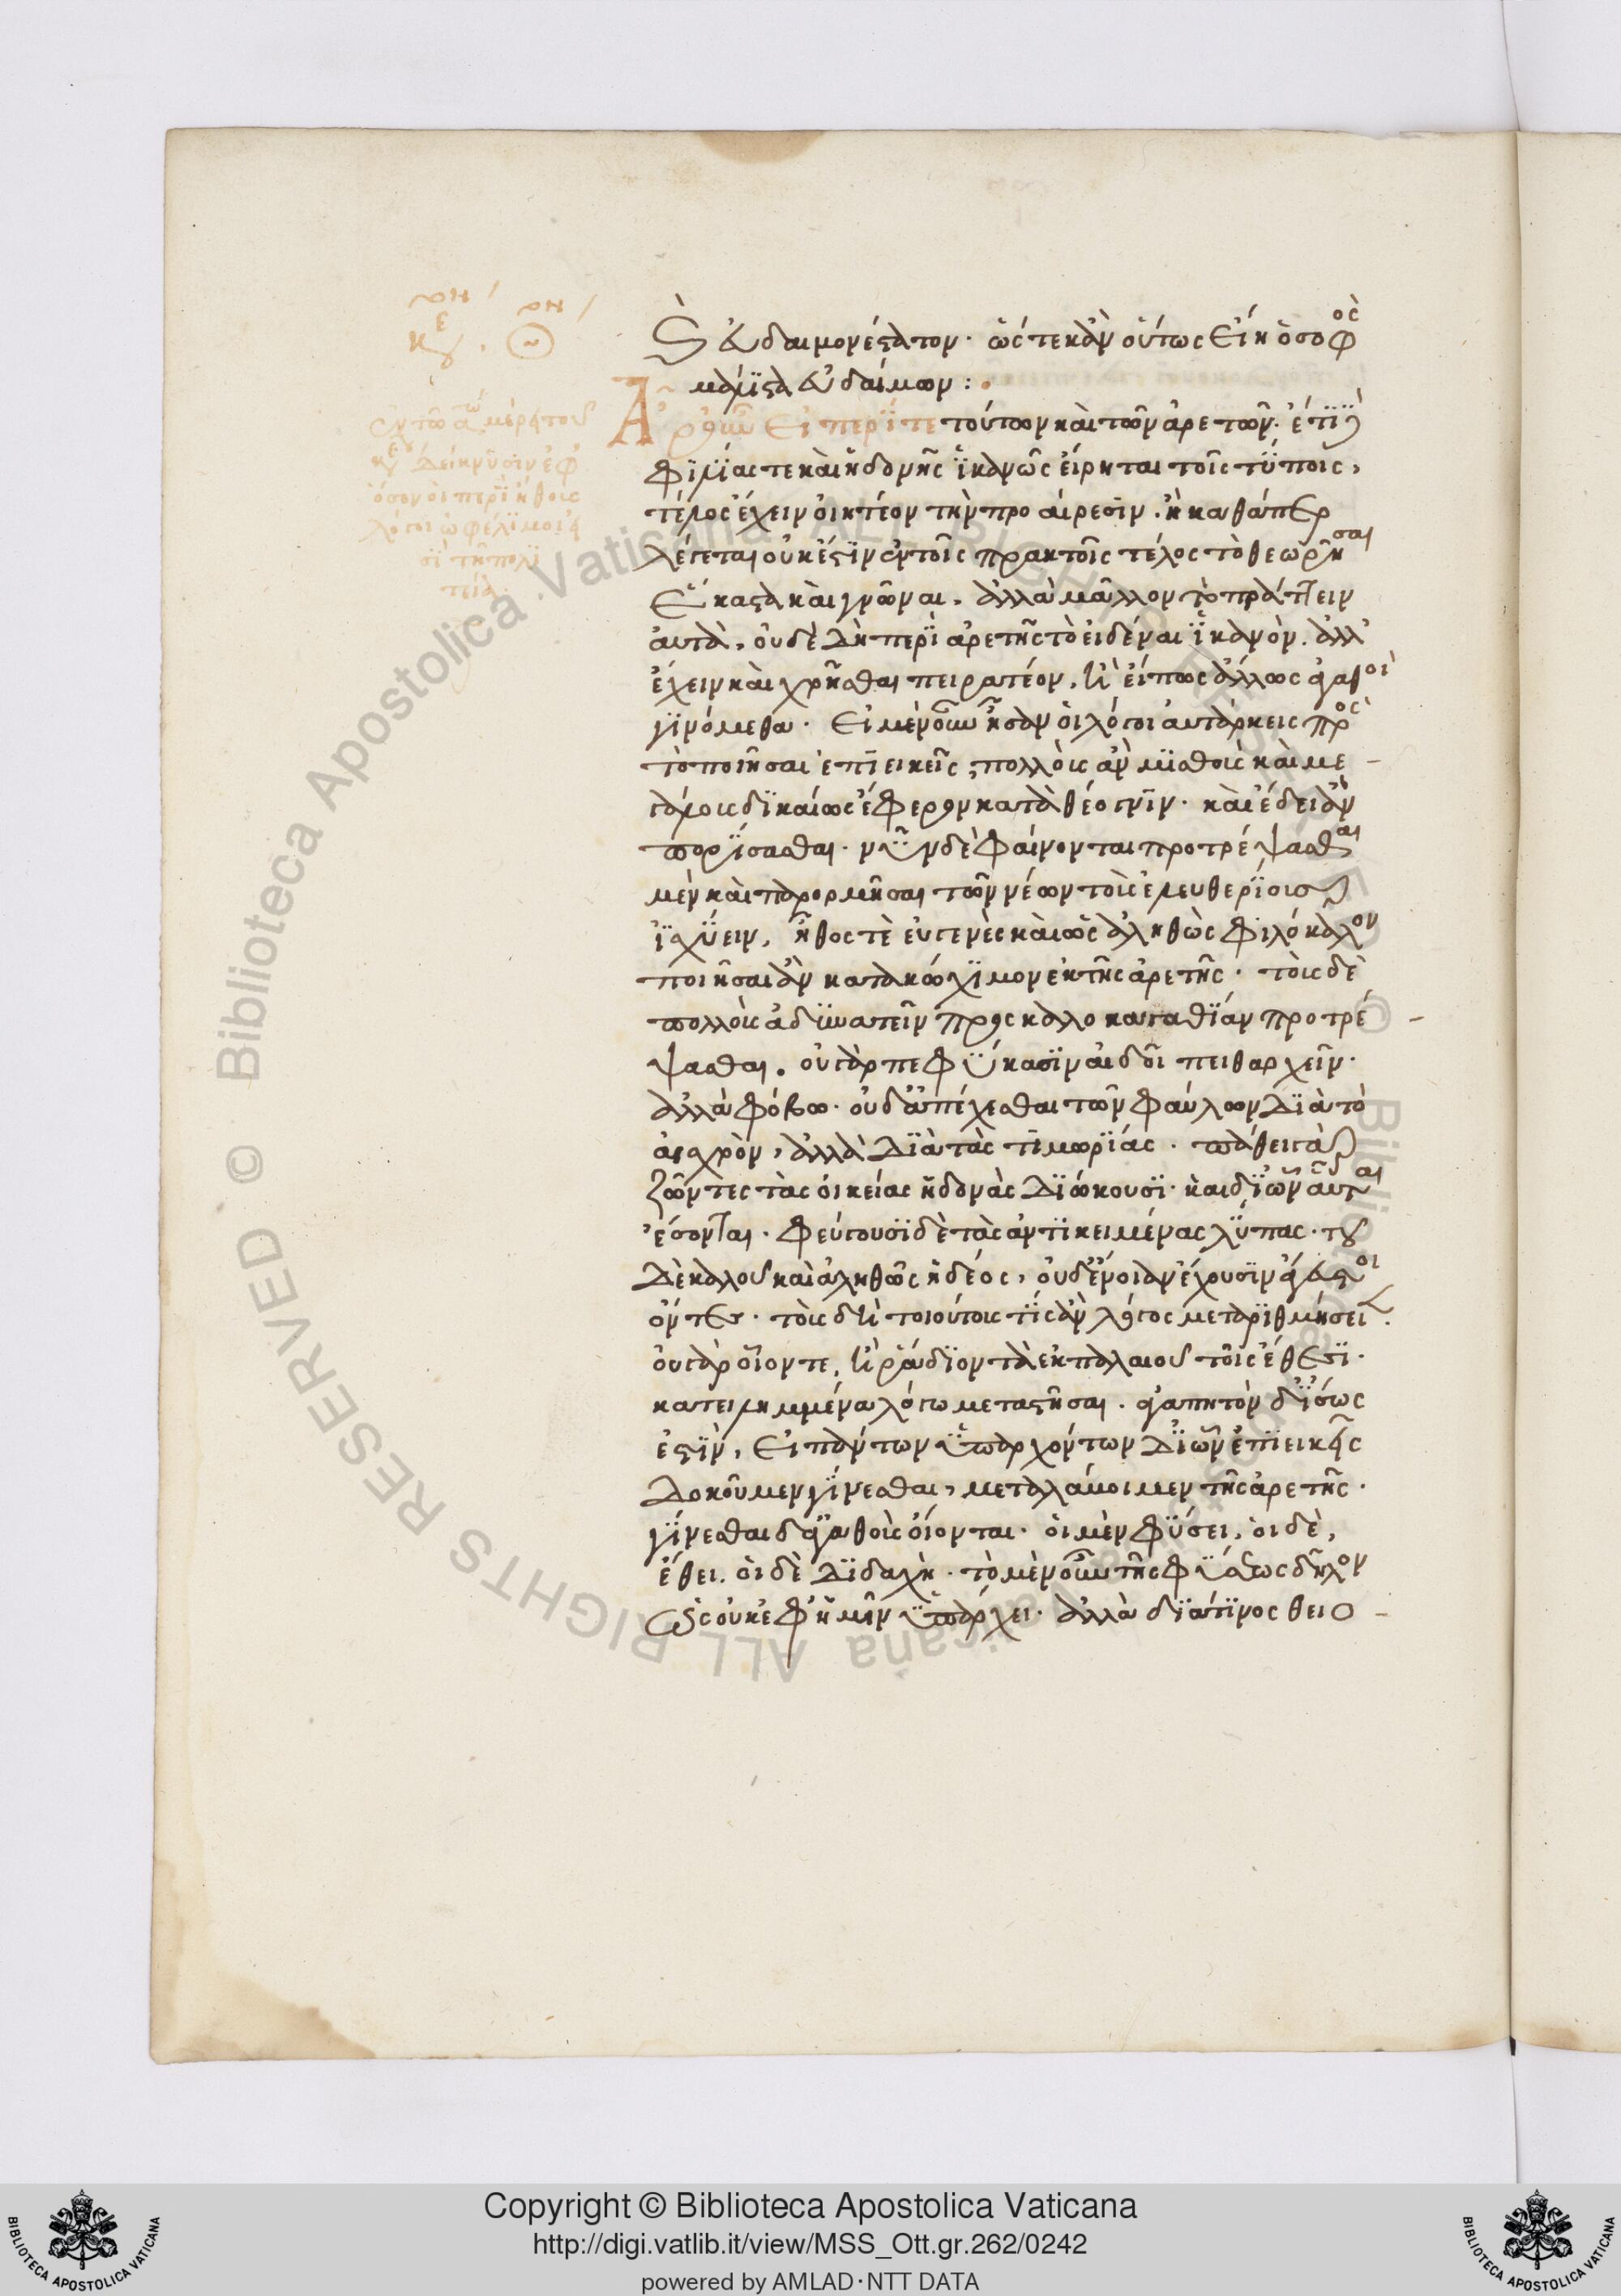 καὶ εὐδαιμονέστατον· ὥστε κἂν οὕτως εἴη ὁ σοφὸς
μάλιστα εὐδαίμων:
Ἆρ' οὖν εἰ περί τε τούτων καὶ τῶν ἀρετῶν· ἔτι δὲ
φιλίας τε καὶ ἡδονῆς ἱκανῶς εἴρηται τοῖς τύποις,
τέλος ἔχειν οἰητέον τὴν προαίρεσιν. ἢ καθάπερ
λέγεται οὐκ ἔστιν ἐν τοῖς πρακτοῖς τέλος τὸ θεωρῆσαι
ἕκαστα καὶ γνῶναι, ἀλλὰ μᾶλλον τὸ πράττειν
αὐτά, οὐδὲ δὴ περὶ ἀρετῆς τὸ εἰδέναι ἱκανὸν. ἀλλ'
ἔχειν καὶ χρῆσθαι πειρατέον, ἢ εἴ πως ἄλλως ἀγαθοὶ
γινόμεθα· εἰ μὲν οὖν ἦσαν οἱ λόγοι αὐτάρκεις πρὸς
τὸ ποιῆσαι ἐπιεικεῖς, πολλοὺς ἂν μισθοὺς καὶ με-
γάλους δικαίως ἔφερον κατὰ θέογνιν· καὶ ἔδει ἂν
πορίσασθαι· νῦν δὲ φαίνονται προτρέψασθαι
μὲν καὶ παρορμῆσαι τῶν νέων τοὺς ἐλευθερίους
ἰσχύειν, ἦθος τὲ εὐγενὲς καὶ ὡς ἀληθῶς φιλόκαλον
ποιῆσαι ἂν κατακώχιμον ἐκ τῆς ἀρετῆς· τοὺς δὲ
πολλοὺς ἀδυνατεῖν πρὸς καλοκαγαθίαν προτρέ-
ψασθαι. οὐ γὰρ πεφύκασιν αἰδοῖ πειθαρχεῖν·
ἀλλὰ φόβω· οὐδ' ἀπέχεσθαι τῶν φαύλων διὰ τὸ
αἰσχρὸν, ἀλλὰ διὰ τὰς τιμωρίας· πάθει γὰρ
ζῶντες τὰς οἰκείας ἡδονὰς διώκουσι· καὶ δι' ὧν αὗται
ἔσονται· φεύγουσι δὲ τὰς ἀντικειμένας λύπας· τοῦ
δὲ καλοῦ καὶ ἀληθῶς ἡδέος, οὐδ' ἔννοιαν ἔχουσιν ἄγευστοι
ὄντες· τοὺς δὴ τοιούτους τίς ἂν λόγος μεταρυθμήσει.
οὐ γὰρ οἷόν τε, ἢ ῥᾴδιον τὰ ἐκ παλαιοῦ τοῖς ἔθεσι·
κατειλημμένα λόγω μεταστῆσαι. ἀγαπητὸν δ' ἴσως
ἐστὶν, εἰ πάντων ὑπαρχόντων δι' ὧν ἐπιεικεῖς
δοκοῦμεν γίνεσθαι, μεταλάβοιμεν τῆς ἀρετῆς·
γίνεσθαι δ' ἀγαθοὺς οἴονται· οἱ μὲν φύσει, οἱ δὲ,
ἔθει. οἱ δὲ διδαχῆ· τὸ μὲν οὖν τῆς φύσεως δῆλον
ὡς οὐκ ἐφ' ἡμῖν ὑπάρχει· ἀλλὰ διά τινος θειο-
Copyright © Biblioteca Apostolica Vaticana
http://digi.vatlib.it/view/MSS_Ott.gr.262/0242
powered by AMLAD·NTT DATA